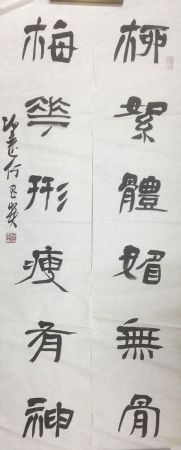 柳絮體媚無骨
梅華形瘦有神